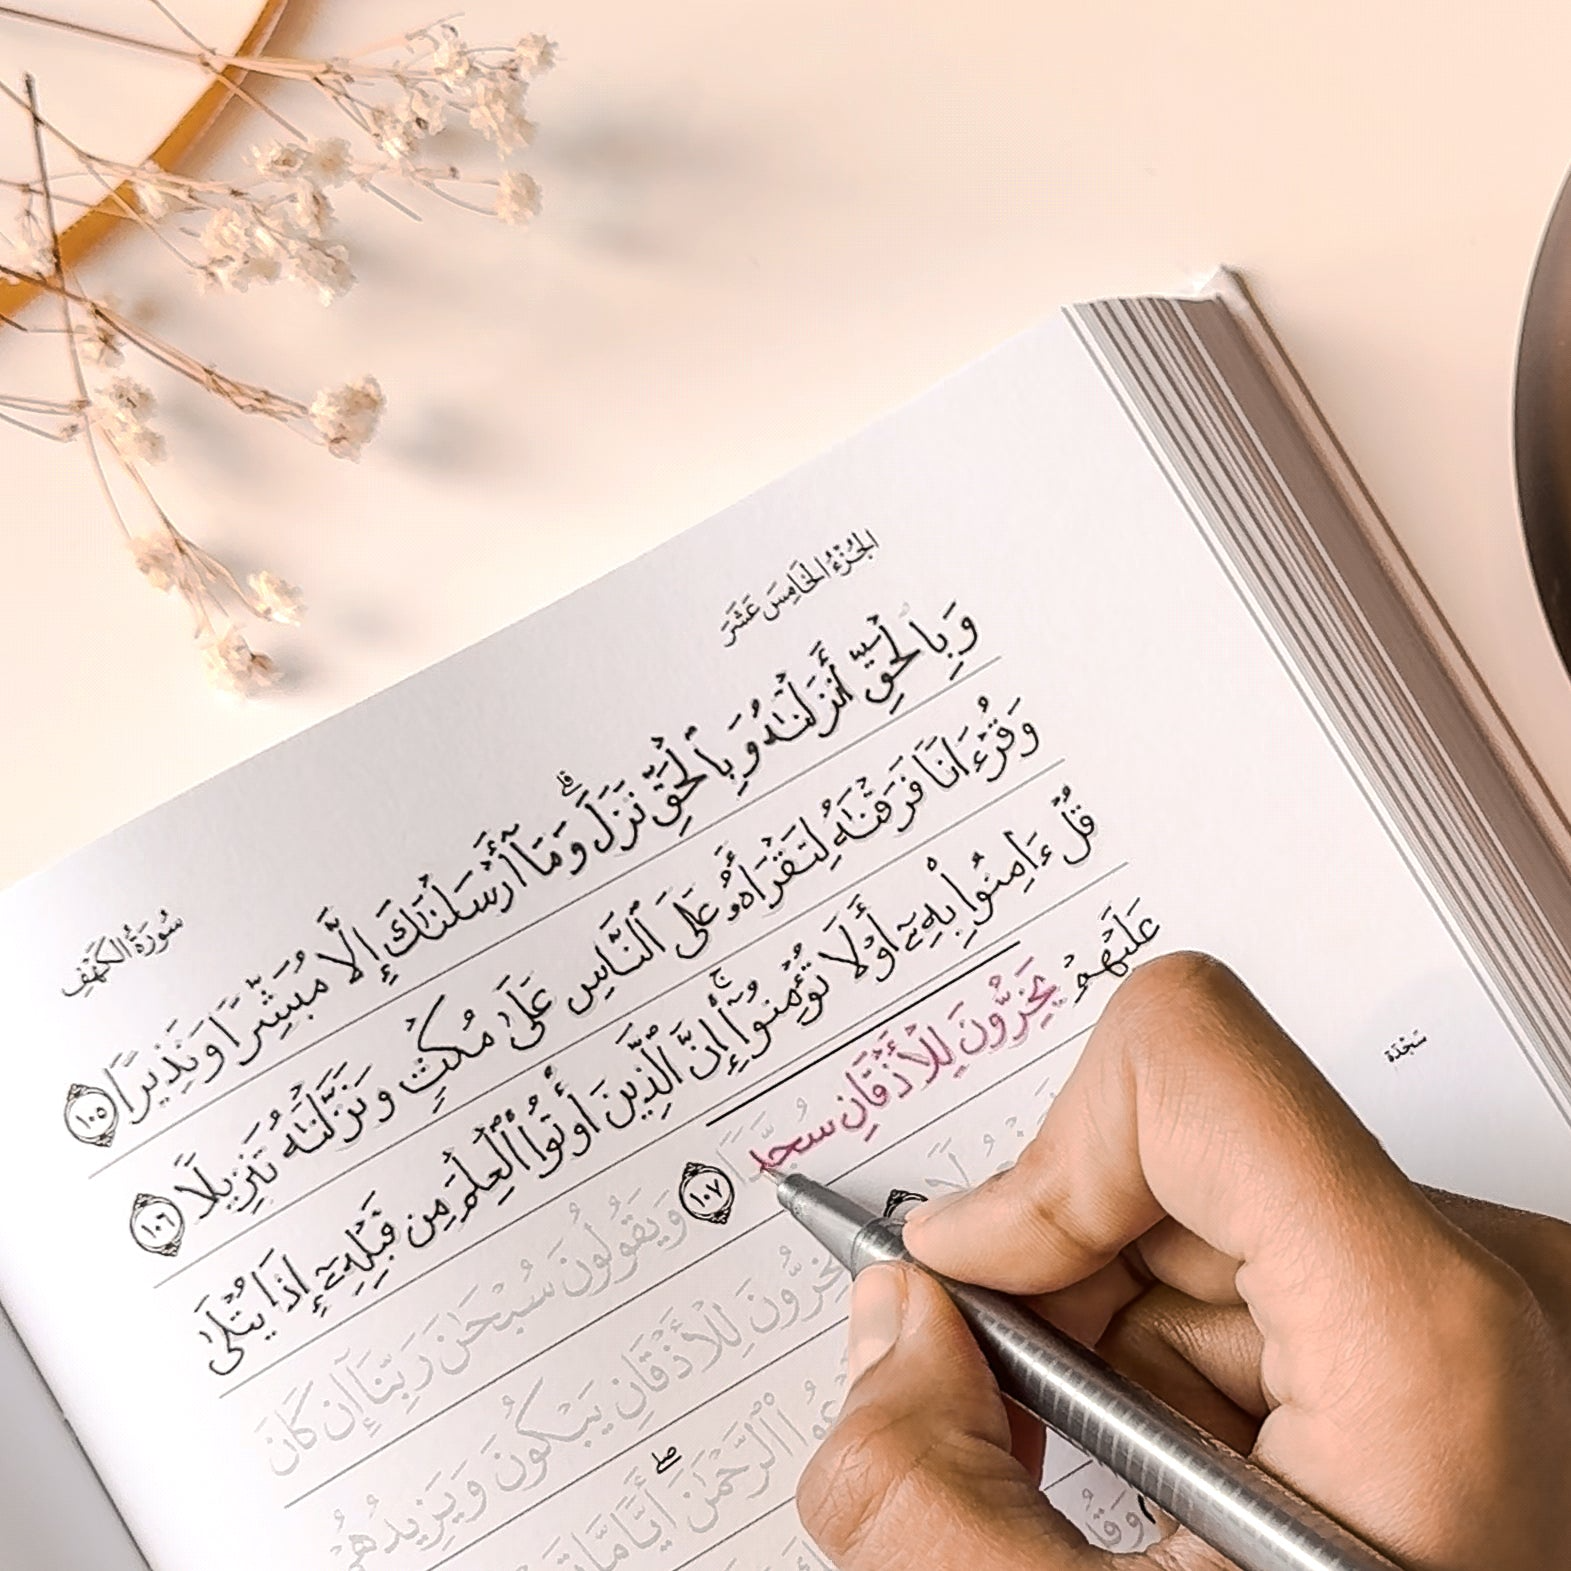 الجُزْءُ الخَامِسَ عَشَرَ
سُورَةُ الكَهْفِ
وَبِٱلْحَقِّ أَنزَلْنَٰهُ وَبِٱلْحَقِّ نَزَلَ ۗ وَمَآ أَرْسَلْنَٰكَ إِلَّا مُبَشِّرًا وَنَذِيرًا ١٠٥
وَقُرْءَانًا فَرَقْنَٰهُ لِتَقْرَأَهُۥ عَلَى ٱلنَّاسِ عَلَىٰ مُكْثٍ وَنَزَّلْنَٰهُ تَنزِيلًا ١٠٦
قُلْ ءَامِنُوا۟ بِهِۦٓ أَوْ لَا تُؤْمِنُوٓا۟ ۚ إِنَّ ٱلَّذِينَ أُوتُوا۟ ٱلْعِلْمَ مِن قَبْلِهِۦٓ إِذَا يُتْلَىٰ
عَلَيْهِمْ يَخِرُّونَ لِلْأَذْقَانِ سُجَّدًا ١٠٧ وَيَقُولُونَ سُبْحَٰنَ رَبِّنَآ إِن كَانَ
يَخِرُّونَ لِلْأَذْقَانِ يَبْكُونَ وَيَزِيدُهُمْ
ٱلرَّحْمَٰنَ ۖ أَيًّا مَّا
سَجْدَة